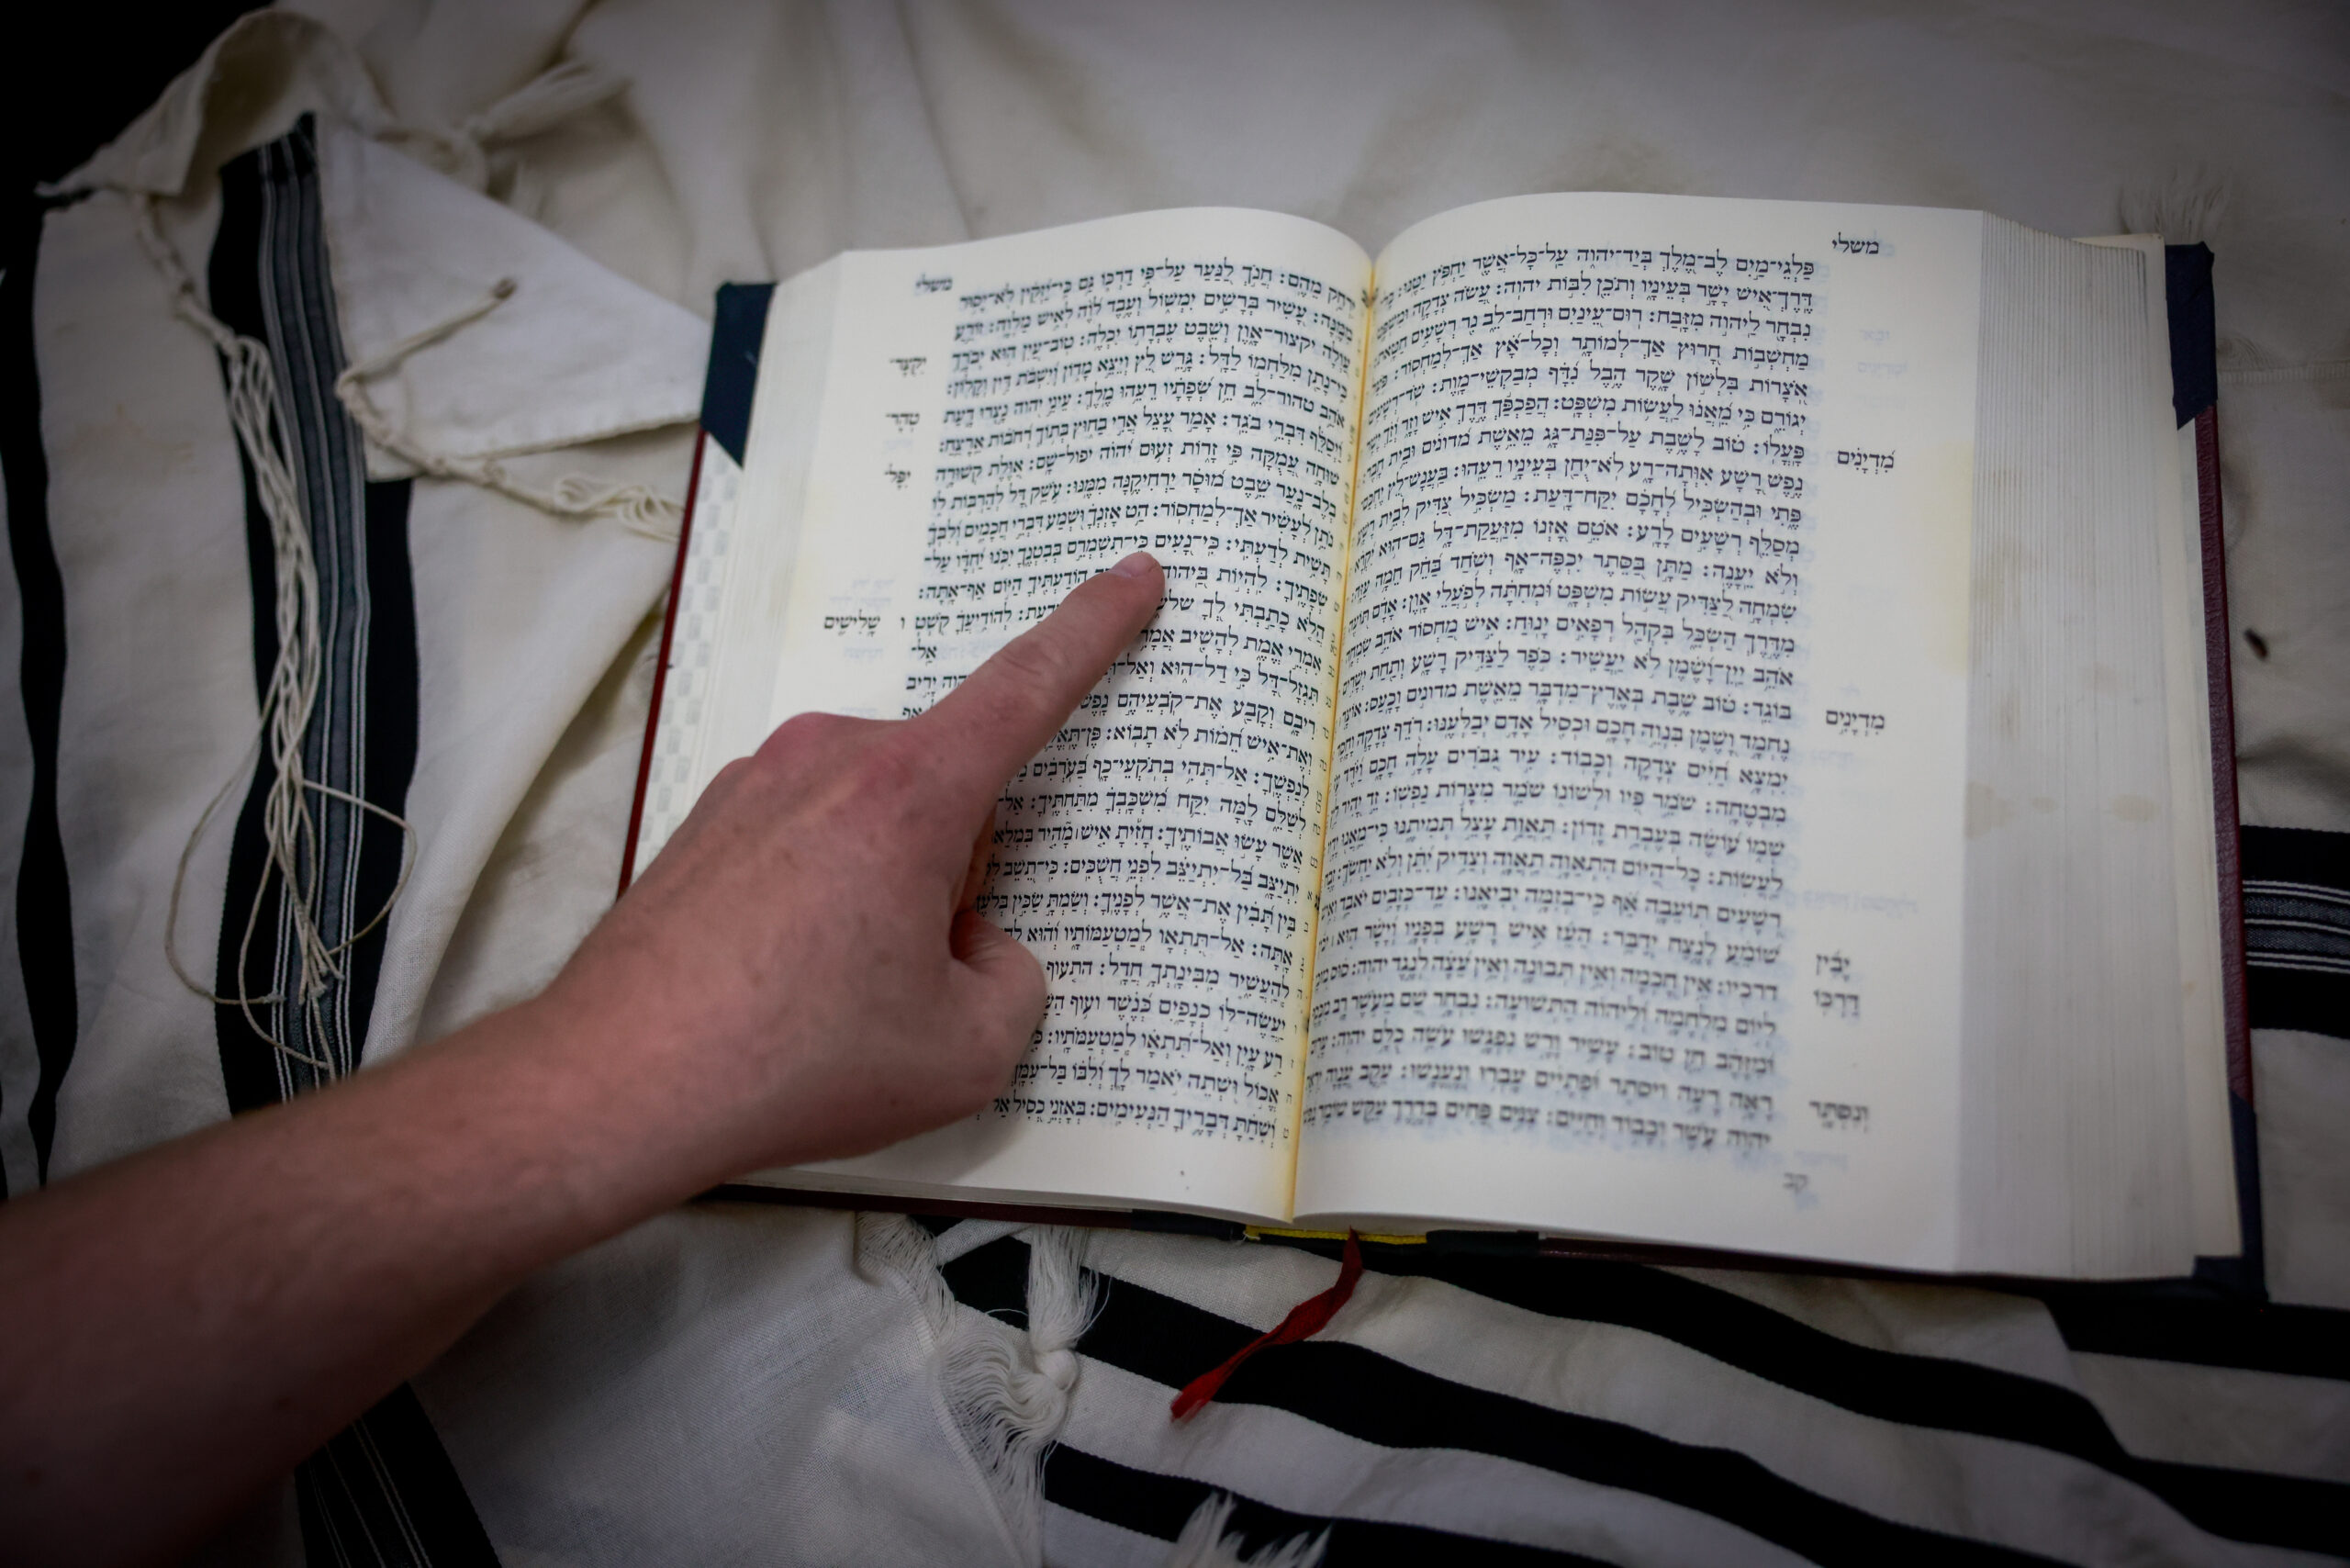 משלי
פַּלְגֵי־מַיִם לֶב־מֶלֶךְ בְּיַד־יְהוָה עַל־כָּל־אֲשֶׁר יַחְפֹּץ יַטֶּנּוּ:
דֶּרֶךְ־אִישׁ יָשָׁר בְּעֵינָיו וְתֹכֵן לִבּוֹת יְהוָה: עֲשֹׂה צְדָקָה וּמִשְׁפָּט
נִבְחָר לַיהוָה מִזָּבַח: רוּם־עֵינַיִם וּרְחַב־לֵב נֵר רְשָׁעִים חַטָּאת:
מַחְשְׁבוֹת חָרוּץ אַךְ־לְמוֹתָר וְכָל־אָץ אַךְ־לְמַחְסוֹר: פֹּעַל
אֹצָרוֹת בִּלְשׁוֹן שָׁקֶר הֶבֶל נִדָּף מְבַקְשֵׁי־מָוֶת: שֹׁד־רְשָׁעִים
יְגוֹרֵם כִּי מֵאֲנוּ לַעֲשׂוֹת מִשְׁפָּט: הֲפַכְפַּךְ דֶּרֶךְ אִישׁ וָזָר וְזַךְ יָשָׁר
פָּעֳלוֹ: טוֹב לָשֶׁבֶת עַל־פִּנַּת־גָּג מֵאֵשֶׁת מדונים וּבֵית חָבֶר: מִדְיָנִים
נֶפֶשׁ רָשָׁע אִוְּתָה־רָע לֹא־יֻחַן בְּעֵינָיו רֵעֵהוּ: בַּעֲנָשׁ־לֵץ יֶחְכַּם־
פֶּתִי וּבְהַשְׂכִּיל לְחָכָם יִקַּח־דָּעַת: מַשְׂכִּיל צַדִּיק לְבֵית רָשָׁע
מְסַלֵּף רְשָׁעִים לָרָע: אֹטֵם אָזְנוֹ מִזַּעֲקַת־דָּל גַּם־הוּא יִקְרָא
וְלֹא יֵעָנֶה: מַתָּן בַּסֵּתֶר יִכְפֶּה־אָף וְשֹׁחַד בַּחֵק חֵמָה עַזָּה:
שִׂמְחָה לַצַּדִּיק עֲשׂוֹת מִשְׁפָּט וּמְחִתָּה לְפֹעֲלֵי אָוֶן: אָדָם תּוֹעֶה
מִדֶּרֶךְ הַשְׂכֵּל בִּקְהַל רְפָאִים יָנוּחַ: אִישׁ מַחְסוֹר אֹהֵב שִׂמְחָה
אֹהֵב יַיִן־וָשֶׁמֶן לֹא יַעֲשִׁיר: כֹּפֶר לַצַּדִּיק רָשָׁע וְתַחַת יְשָׁרִים
בּוֹגֵד: טוֹב שֶׁבֶת בְּאֶרֶץ־מִדְבָּר מֵאֵשֶׁת מדונים וָכָעַס: אוֹצָר מִדְיָנִים
נֶחְמָד וָשֶׁמֶן בִּנְוֵה חָכָם וּכְסִיל אָדָם יְבַלְּעֶנּוּ: רֹדֵף צְדָקָה וָחָסֶד
יִמְצָא חַיִּים צְדָקָה וְכָבוֹד: עִיר גִּבֹּרִים עָלָה חָכָם וַיֹּרֶד
מִבְטֶחָה: שֹׁמֵר פִּיו וּלְשׁוֹנוֹ שֹׁמֵר מִצָּרוֹת נַפְשׁוֹ: זֵד יָהִיר לֵץ
שְׁמוֹ עוֹשֶׂה בְּעֶבְרַת זָדוֹן: תַּאֲוַת עָצֵל תְּמִיתֶנּוּ כִּי־מֵאֲנוּ יָדָיו
לַעֲשׂוֹת: כָּל־הַיּוֹם הִתְאַוָּה תַאֲוָה וְצַדִּיק יִתֵּן וְלֹא יַחְשֹׂךְ: זֶבַח
רְשָׁעִים תּוֹעֵבָה אַף כִּי־בְזִמָּה יְבִיאֶנּוּ: עֵד־כְּזָבִים יֹאבֵד וְאִישׁ
שׁוֹמֵעַ לָנֶצַח יְדַבֵּר: הֵעֵז אִישׁ רָשָׁע בְּפָנָיו וְיָשָׁר הוּא יָבִין
דרכיו: אֵין חָכְמָה וְאֵין תְּבוּנָה וְאֵין עֵצָה לְנֶגֶד יְהוָה: סוּס מוּכָן דַּרְכּוֹ
לְיוֹם מִלְחָמָה וְלַיהוָה הַתְּשׁוּעָה: נִבְחָר שֵׁם מֵעֹשֶׁר רָב מִכֶּסֶף
וּמִזָּהָב חֵן טוֹב: עָשִׁיר וָרָשׁ נִפְגָּשׁוּ עֹשֵׂה כֻלָּם יְהוָה: עָרוּם
רָאָה רָעָה ויסתר וּפְתָיִים עָבְרוּ וְנֶעֱנָשׁוּ: עֵקֶב עֲנָוָה יִרְאַת וְנִסְתָּר
יְהוָה עֹשֶׁר וְכָבוֹד וְחַיִּים: צִנִּים פַּחִים בְּדֶרֶךְ עִקֵּשׁ שׁוֹמֵר נַפְשׁוֹ
קב
משלי
יִרְחַק מֵהֶם: חֲנֹךְ לַנַּעַר עַל־פִּי דַרְכּוֹ גַּם כִּי־יַזְקִין לֹא־יָסוּר
מִמֶּנָּה: עָשִׁיר בְּרָשִׁים יִמְשׁוֹל וְעֶבֶד לֹוֶה לְאִישׁ מַלְוֶה: זוֹרֵעַ
עַוְלָה יקצור־אָוֶן וְשֵׁבֶט עֶבְרָתוֹ יִכְלֶה: טוֹב־עַיִן הוּא יְבֹרָךְ יִקְצָר־
כִּי־נָתַן מִלַּחְמוֹ לַדָּל: גָּרֵשׁ לֵץ וְיֵצֵא מָדוֹן וְיִשְׁבֹּת דִּין וְקָלוֹן:
אֹהֵב טהור־לֵב חֵן שְׂפָתָיו רֵעֵהוּ מֶלֶךְ: עֵינֵי יְהוָה נָצְרוּ דָעַת טְהָר־
וַיְסַלֵּף דִּבְרֵי בֹגֵד: אָמַר עָצֵל אֲרִי בַחוּץ בְּתוֹךְ רְחֹבוֹת אֵרָצֵחַ:
שׁוּחָה עֲמֻקָּה פִּי זָרוֹת זְעוּם יְהוָה יפול־שָׁם: אִוֶּלֶת קְשׁוּרָה יִפָּל־
בְלֶב־נָעַר שֵׁבֶט מוּסָר יַרְחִיקֶנָּה מִמֶּנּוּ: עֹשֵׁק דָּל לְהַרְבּוֹת לוֹ
נֹתֵן לְעָשִׁיר אַךְ־לְמַחְסוֹר: הַט אָזְנְךָ וּשְׁמַע דִּבְרֵי חֲכָמִים וְלִבְּךָ
תָּשִׁית לְדַעְתִּי: כִּי־נָעִים כִּי־תִשְׁמְרֵם בְּבִטְנֶךָ יִכֹּנוּ יַחְדָּו עַל־
שְׂפָתֶיךָ: לִהְיוֹת בַּיהוָה הוֹדַעְתִּיךָ הַיּוֹם אַף־אָתָּה:
הֲלֹא כָתַבְתִּי לְךָ וָדָעַת: לְהוֹדִיעֲךָ קֹשְׁטְ ו שָׁלִישִׁים
אִמְרֵי אֱמֶת לְהָשִׁיב אֲמָרִים אַל־
תִּגְזָל־דָּל כִּי דַל־הוּא וְאַל־ יְהוָה יָרִיב
רִיבָם וְקָבַע אֶת־קֹבְעֵיהֶם נָפֶשׁ:
וְאֶת־אִישׁ חֵמוֹת לֹא תָבוֹא: פֶּן־תֶּאֱלַף
לְנַפְשֶׁךָ: אַל־תְּהִי בְתֹקְעֵי־כָף בַּעֹרְבִים
לְשַׁלֵּם לָמָּה יִקַּח מִשְׁכָּבְךָ מִתַּחְתֶּיךָ: אַל־
אֲשֶׁר עָשׂוּ אֲבוֹתֶיךָ: חָזִיתָ אִישׁ מָהִיר בִּמְלַאכְתּוֹ
יִתְיַצָּב בַּל־יִתְיַצֵּב לִפְנֵי חֲשֻׁכִּים: כִּי־תֵשֵׁב
בִּין תָּבִין אֶת־אֲשֶׁר לְפָנֶיךָ: וְשַׂמְתָּ שַׂכִּין בְּלֹעֶךָ
אָתָּה: אַל־תִּתְאָו לְמַטְעַמּוֹתָיו וְהוּא
לְהַעֲשִׁיר מִבִּינָתְךָ חֲדָל: התעוף
יַעֲשֶׂה־לּוֹ כְנָפַיִם כְּנֶשֶׁר ועיף
רַע עָיִן וְאַל־תִּתְאָו לְמַטְעַמֹּתָיו:
אֱכוֹל וּשְׁתֵה יֹאמַר לָךְ וְלִבּוֹ בַּל־עִמָּךְ:
וְשִׁחַתָּ דְּבָרֶיךָ הַנְּעִימִים: בְּאָזְנֵי כְסִיל